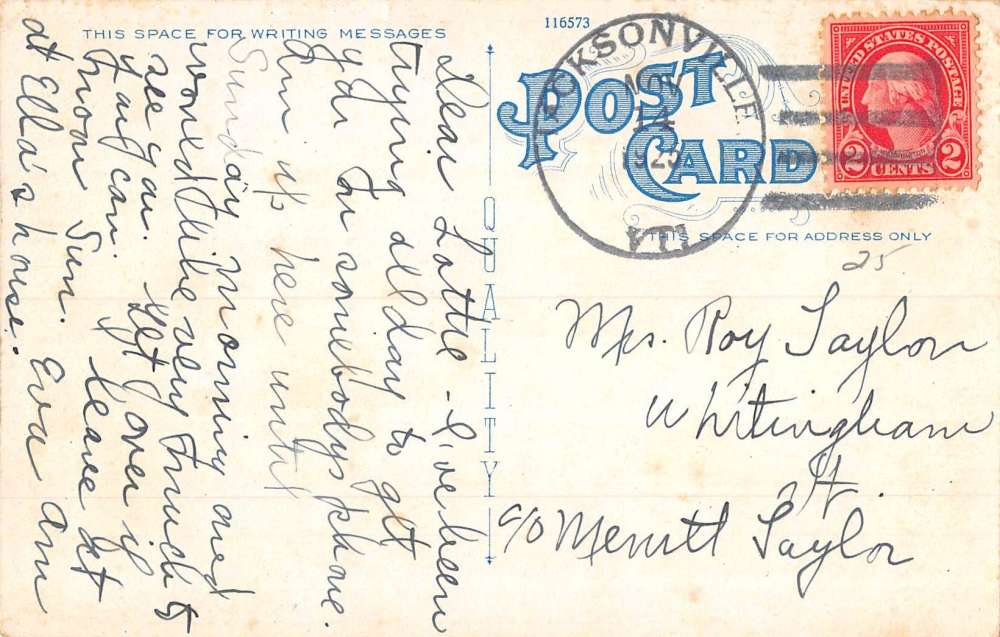 THIS SPACE FOR WRITING MESSAGES
116573
POST CARD
THIS SPACE FOR ADDRESS ONLY
QUALITY
JACKSONVILLE
NOV
1925
VT.
UNITED STATES POSTAGE
2 CENTS 2
Dear Lottie - I've been
trying all day to get
somebodys phone.
Am up here until
Sunday morning and
would like very much to
see you. Get over if
you can. Leave at
noon Sun. Eva Am
at Ella's house.
25
Mrs. Roy Taylor
Whitingham
Vt.
c/o Merritt Taylor